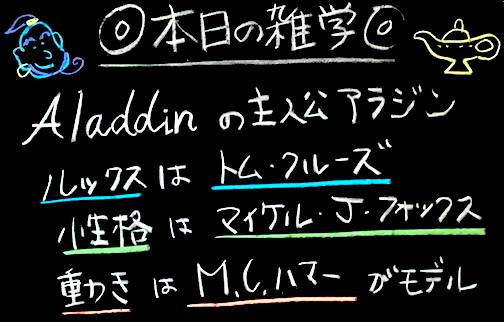 ◎本日の雑学◎
Aladdin の主人公アラジン
ルックスは トム・クルーズ
性格は マイケル・J・フォックス
重かきは M.C.ハマーがモデル